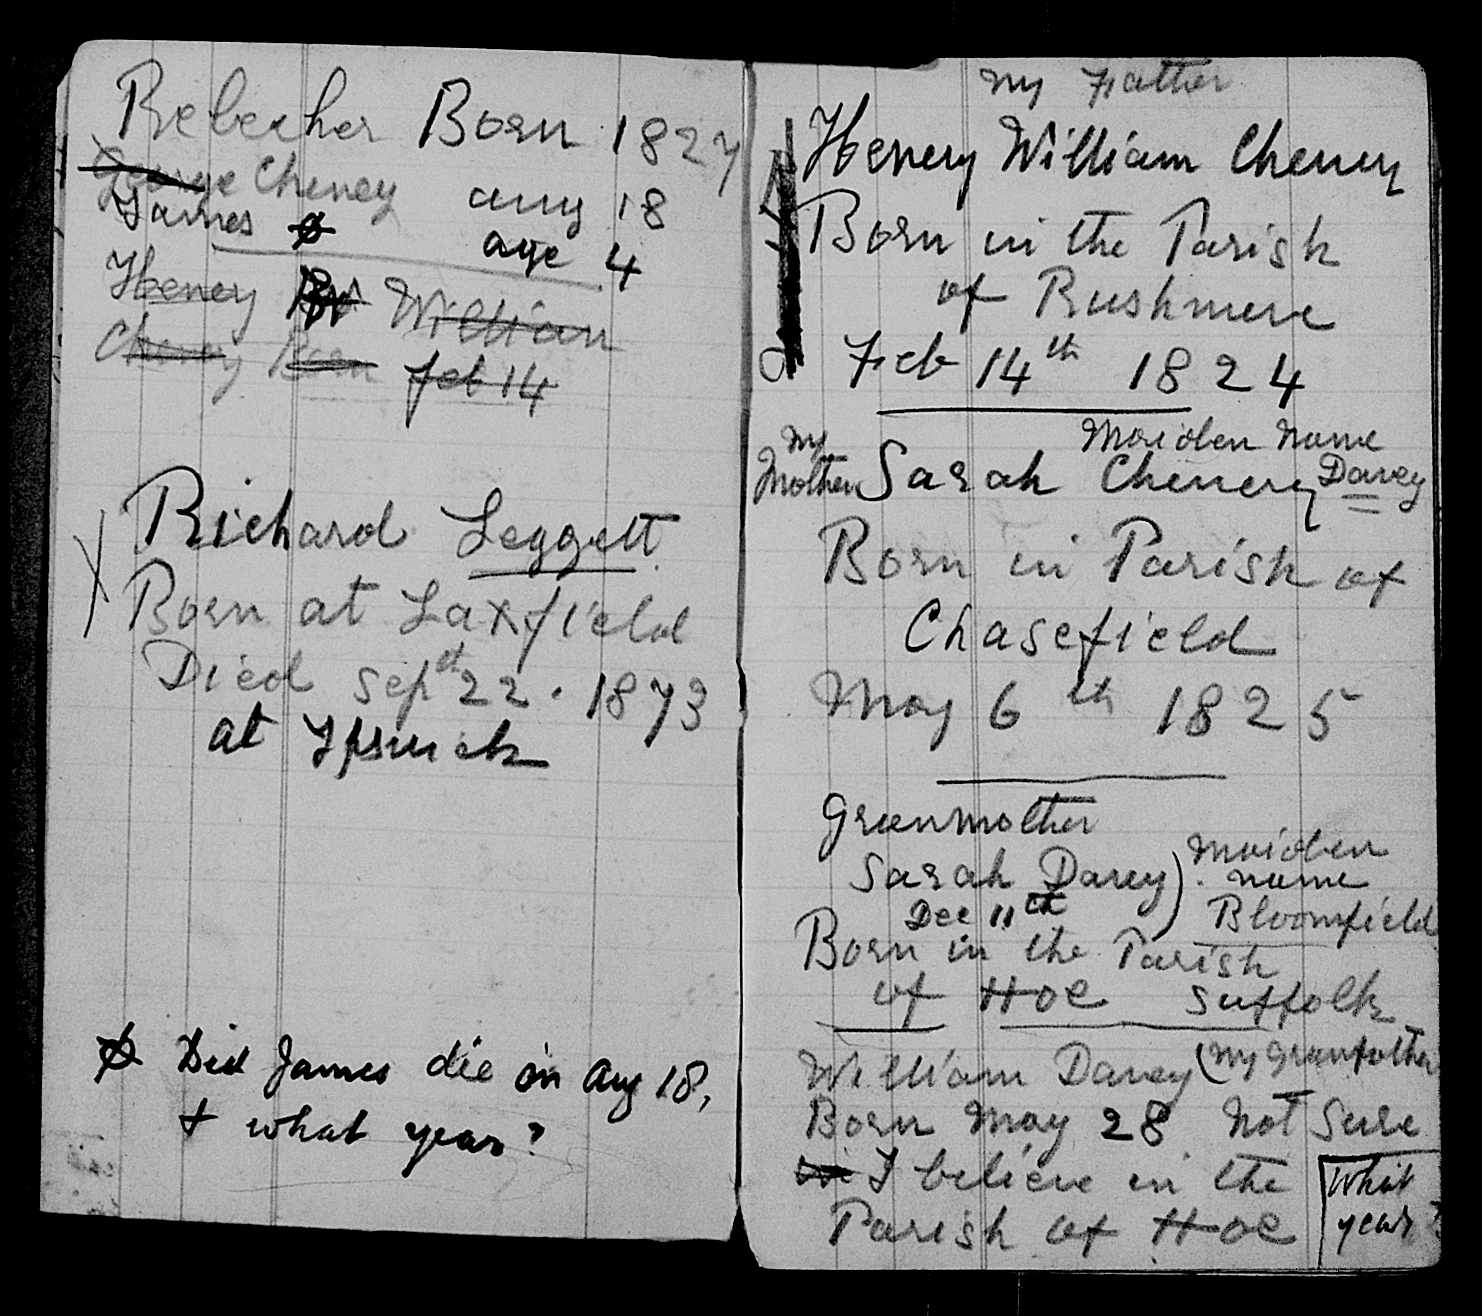 Rebecher Born 1827
George Cheney aug 18
James ø age 4
Henery William
Cheney Born feb 14
Richard Leggett
Born at Laxfield
Died Sept 22. 1873
at Ipswich
ø Did James die on Aug 18,
+ what year?
My Father
Henery William Cheney
Born in the Parish
of Rushmere
Feb 14th 1824
Maiden Name
My
Mother Sarah Chenery Davey
Born in Parish of
Chasefield
May 6th 1825
Granmother
Sarah Davey) Maiden
name
Dec 11th Bloomfield
Born in the Parish
of Hoe Suffolk
William Davey (My Granfather
Born May 28 Not Sure
I believe in the What
Parish of Hoe year?